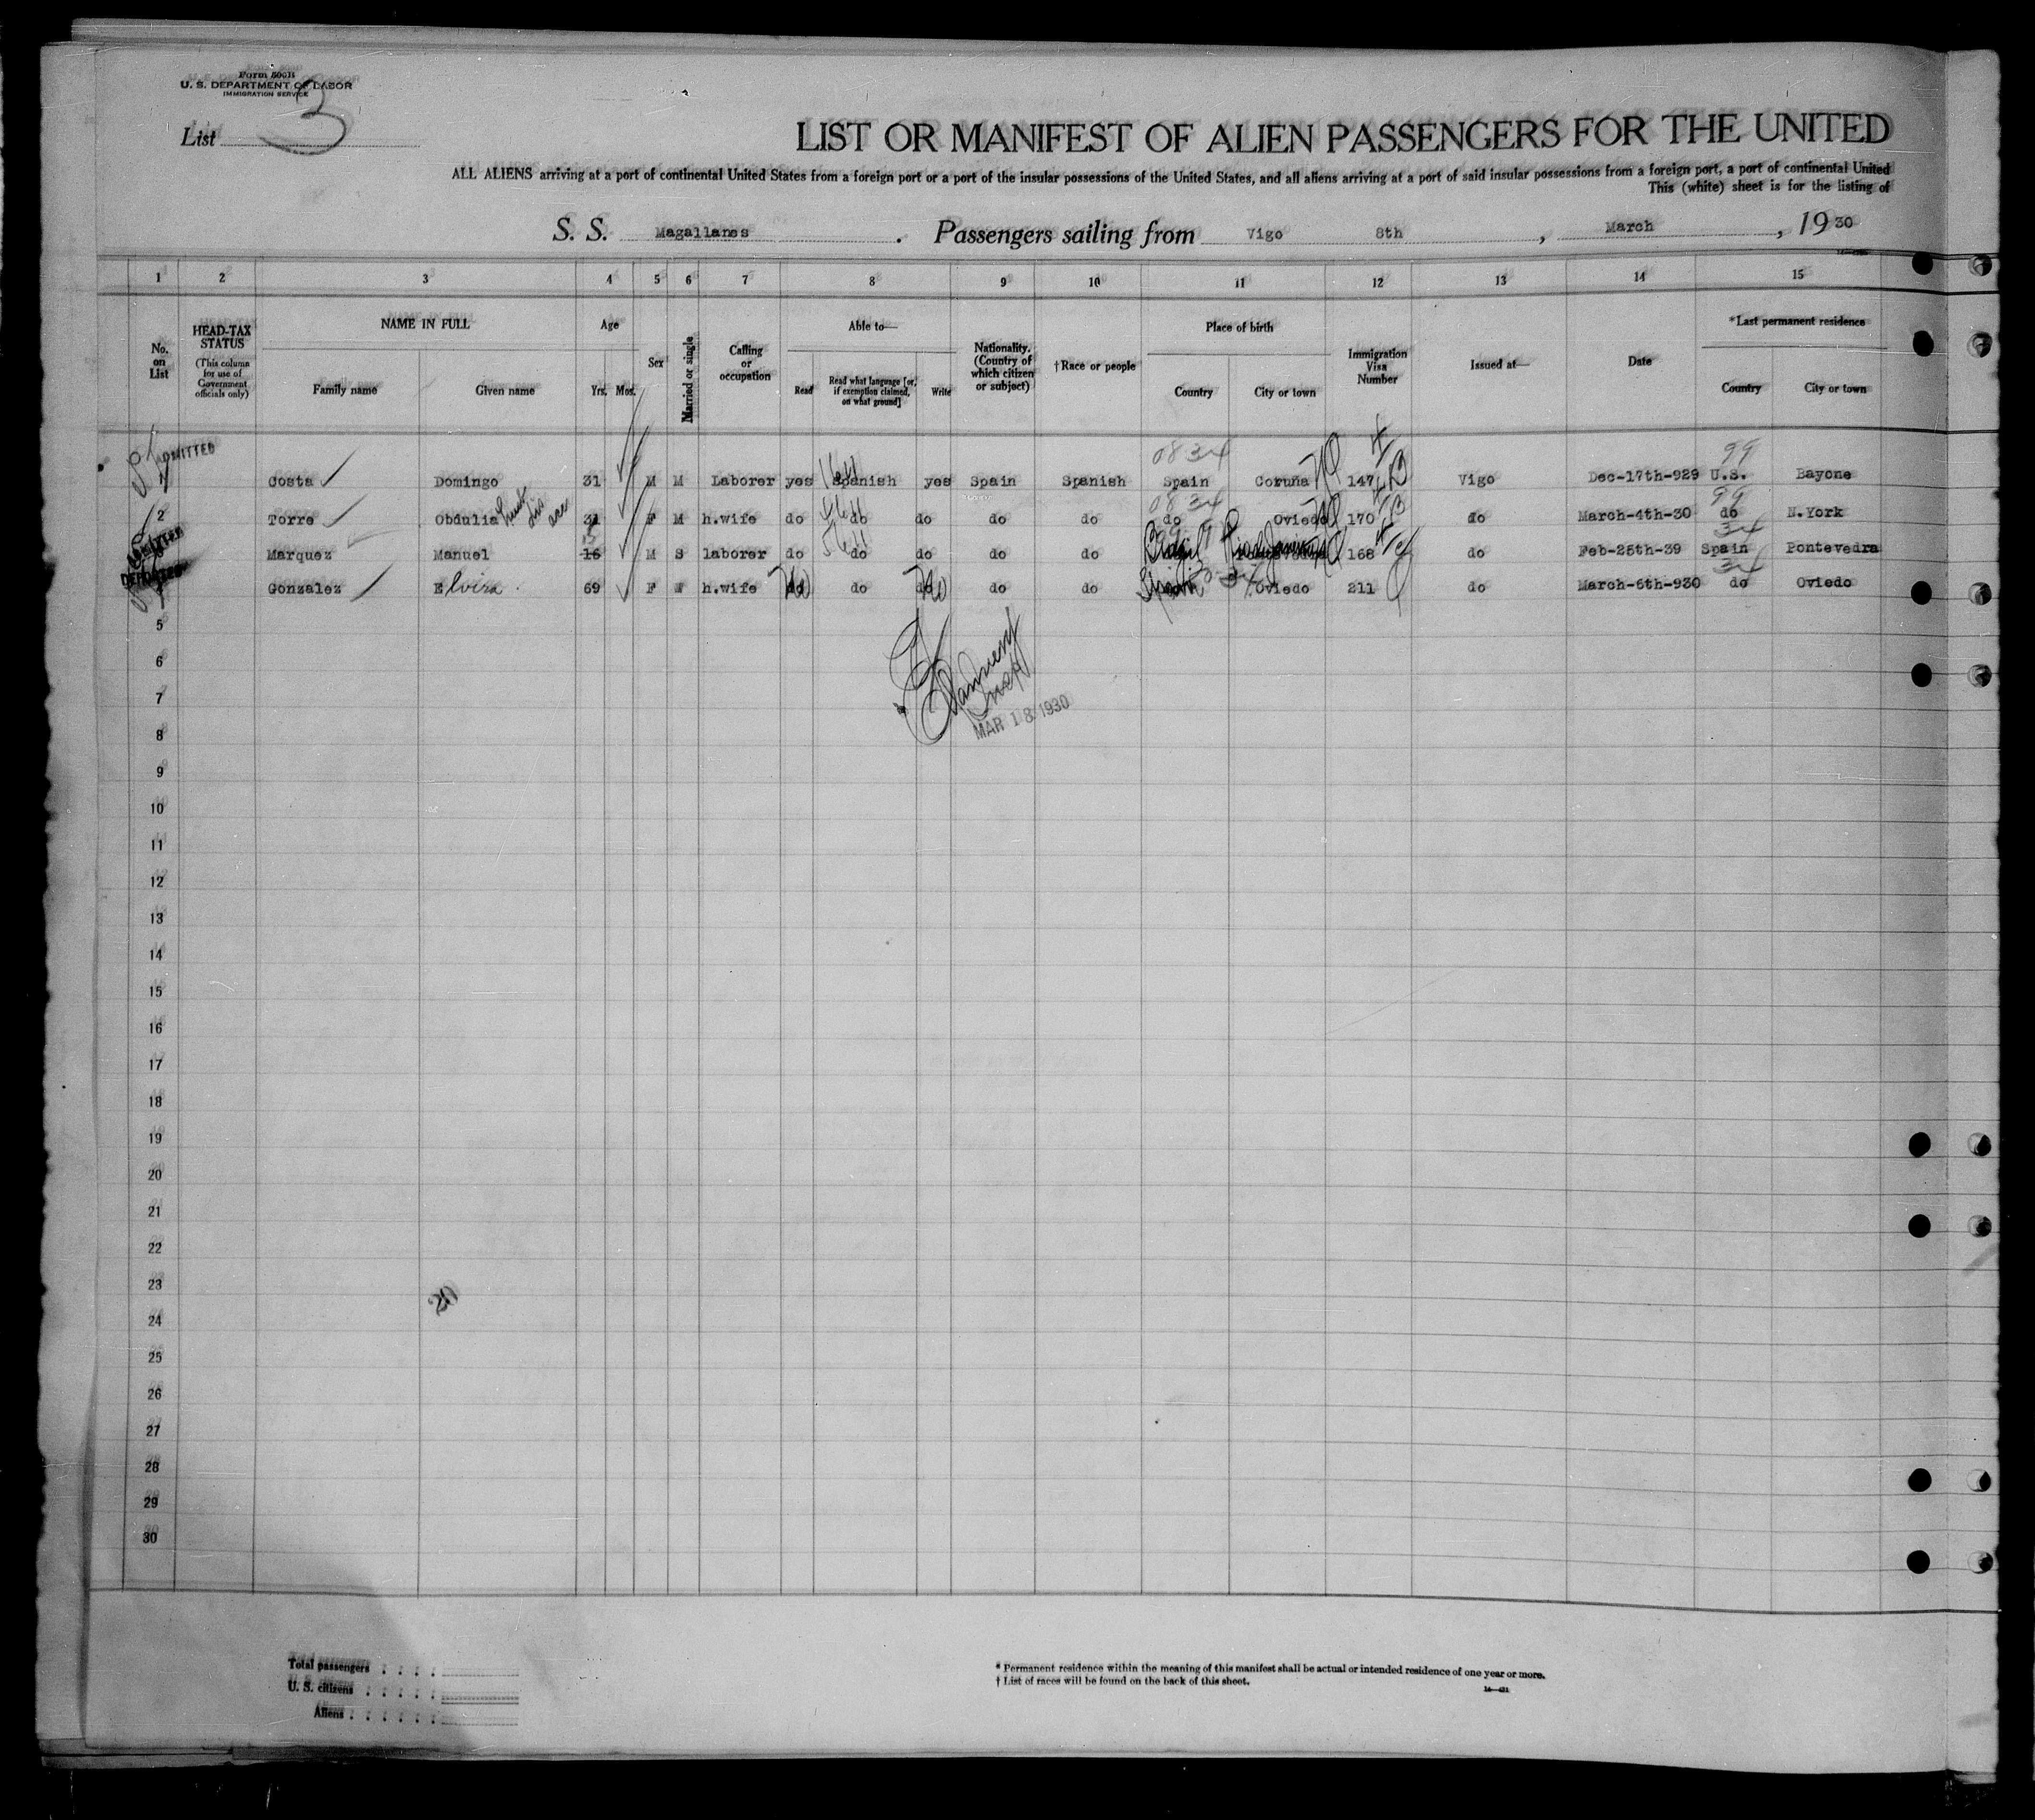 Form 500B
U. S. DEPARTMENT OF LABOR
IMMIGRATION SERVICE
List 3
LIST OR MANIFEST OF ALIEN PASSENGERS FOR THE UNITED
ALL ALIENS arriving at a port of continental United States from a foreign port or a port of the insular possessions of the United States, and all aliens arriving at a port of said insular possessions from a foreign port, a port of continental United
This (white) sheet is for the listing of
S. S. Magallanes . Passengers sailing from Vigo 8th , March , 19 30
1 2 3 4 5 6 7 8 9 10 11 12 13 14 15
No. on List
HEAD-TAX STATUS (This column for use of Government officials only)
NAME IN FULL
Family name Given name
Age
Yrs. Mos.
Sex
Married or single
Calling or occupation
Able to—
Read Read what language [or, if exemption claimed, on what ground] Write
Nationality. (Country of which citizen or subject)
†Race or people
Place of birth
Country City or town
Immigration Visa Number
Issued at—
Date
*Last permanent residence
Country City or town
ADMITTED
0834 99
Costa Domingo 31 M M Laborer yes Spanish yes Spain Spanish Spain Coruña 147 Vigo Dec-17th-929 U.S. Bayone
0834 99
2 Torre Obdulia 31 F M h.wife do do do do do do Oviedo 170 do March-4th-30 do N.York
ADMITTED
34
Marquez Manuel 16 M S laborer do do do do do Brazil 168 do Feb-25th-39 Spain Pontevedra
34
Gonzalez Elvira 69 F W h.wife do do do do do Spain Oviedo 211 do March-6th-930 do Oviedo
5
6
7
MAR 18 1930
8
9
10
11
12
13
14
15
16
17
18
19
20
21
22
23
24
25
26
27
28
29
30
Total passengers
U. S. citizens
Aliens
* Permanent residence within the meaning of this manifest shall be actual or intended residence of one year or more.
† List of races will be found on the back of this sheet.